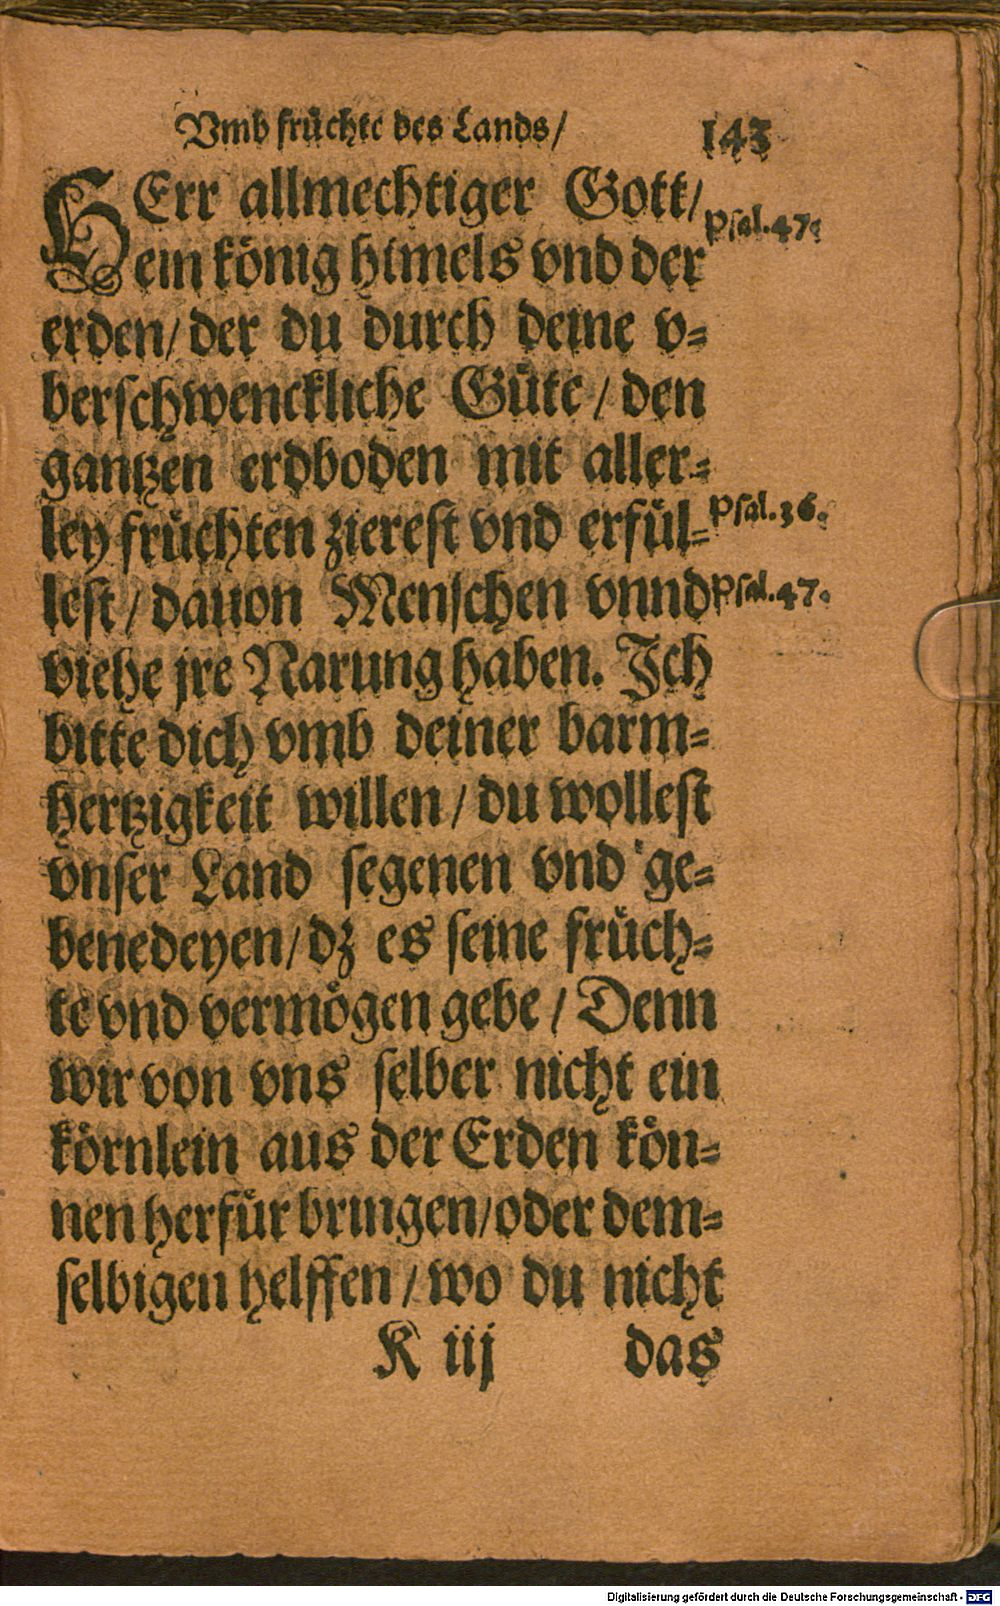 Vmb früchte des Lands/ 143
HErr allmechtiger Gott/ Psal.47.
ein könig himels vnd der
erden/ der du durch deine v=
berschwenckliche Güte / den
gantzen erdboden mit aller=
ley früchten zierest vnd erfül= Psal.36.
lest / dauon Menschen vnnd Psal.47.
viehe jre Narung haben. Ich
bitte dich vmb deiner barm=
hertzigkeit willen / du wollest
vnser Land segenen vnd ge=
benedeyen/ dz es seine früch=
te vnd vermögen gebe / Denn
wir von vns selber nicht ein
körnlein aus der Erden kön=
nen herfür bringen/oder dem=
selbigen helffen / wo du nicht
K iij das
Digitalisierung gefördert durch die Deutsche Forschungsgemeinschaft - DFG